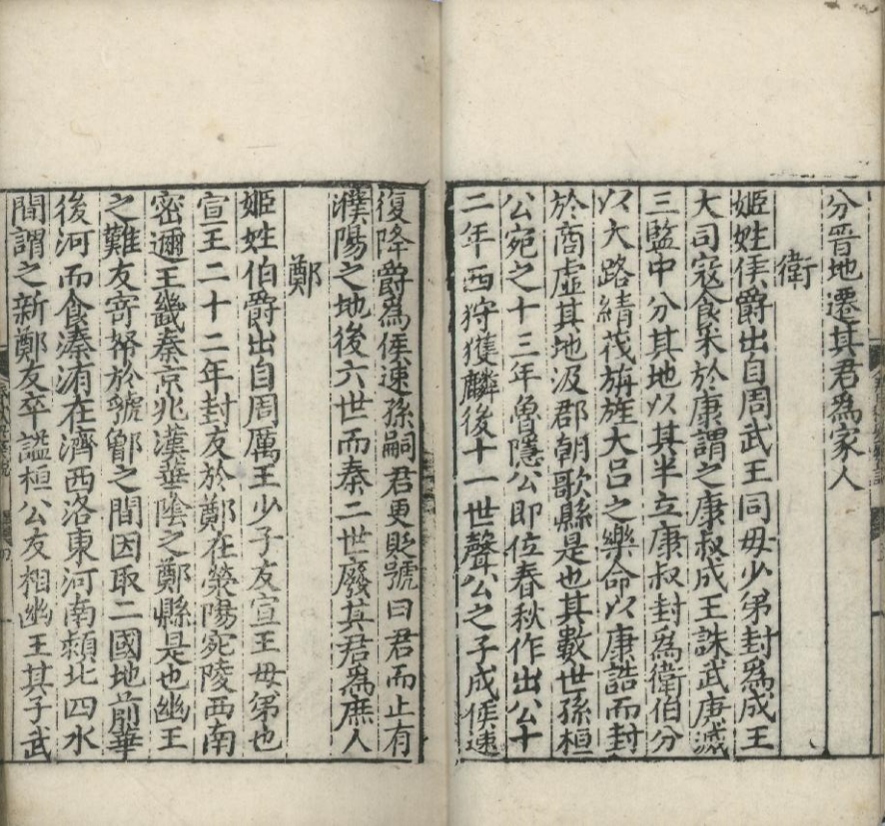 分晋地遷其君爲家人
衛
姬姓侯爵出自周武王同毋少弟封爲成王
大司寇食采於康謂之康叔成王誅武庚滅
三監中分其地以其半立康叔封爲衛伯分
以大路綪茷旃旌大吕之樂命以康誥而封
於商虚其地汲郡朝歌縣是也其數世孫桓
公宛之十三年魯隱公即位春秋作出公十
二年西狩獲麟後十一世聲公之子成侯速
復降爵爲侯速孫嗣君更貶號曰君而止有
濮陽之地後六世而秦二世廢其君爲庶人
鄭
姬姓伯爵出自周厲王少子友宣王毋弟也
宣王二十二年封友於鄭在滎陽宛陵西南
密邇王畿秦京兆漢華陰之鄭縣是也幽王
之難友寄帑於虢鄶之間因取二國地前華
後河而食溱洧在濟西洛東河南潁北四水
間謂之新鄭友卒謚桓公友相幽王其子武